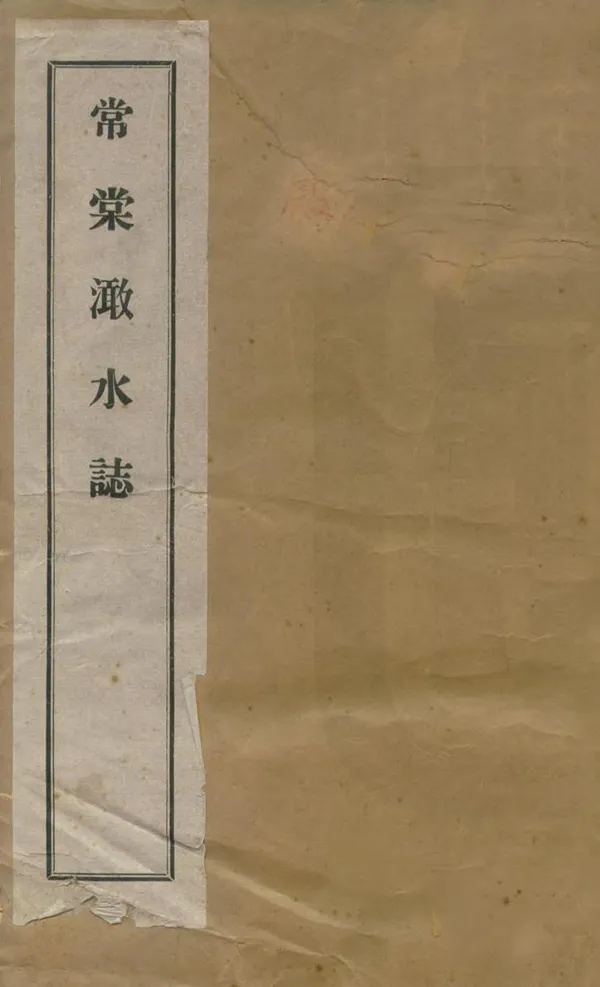 常棠澉水誌